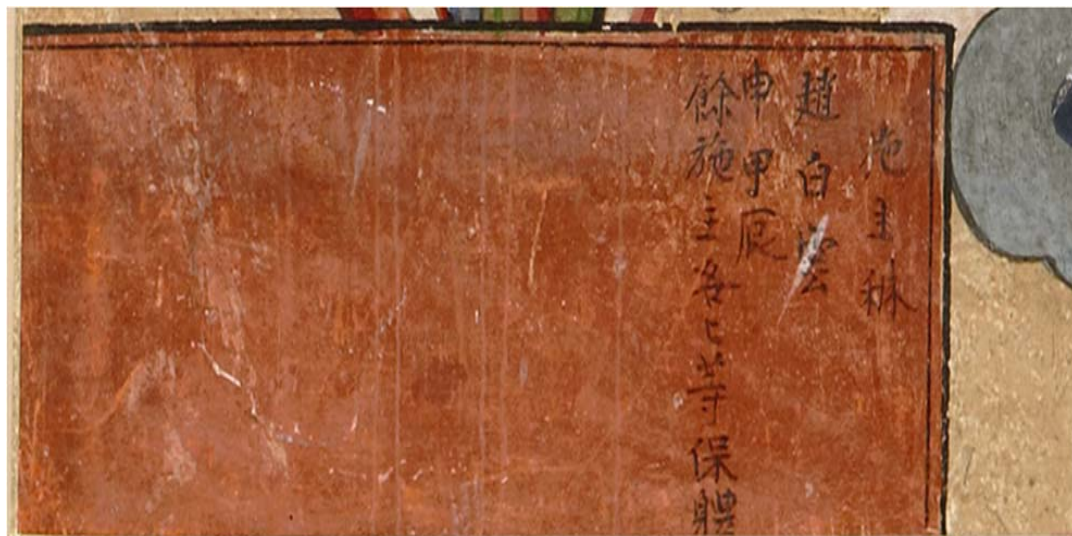 施主秩
趙白雲
申甲辰
餘施主各々等保體